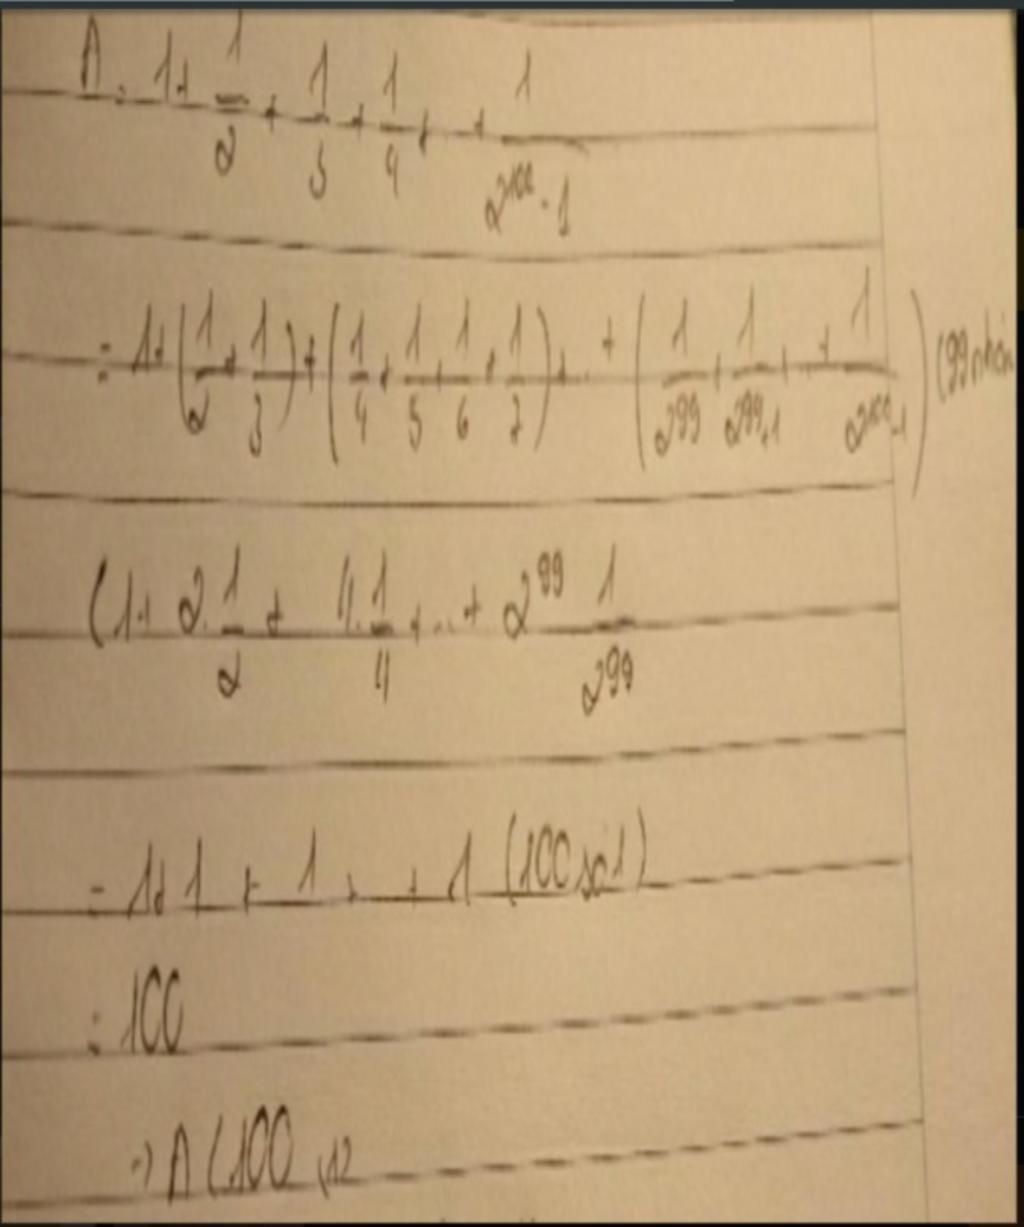 A = 1 + 1/2 + 1/3 + 1/4 + + 1/(2^100 - 1)
= 1 + (1/2 + 1/3) + (1/4 + 1/5 + 1/6 + 1/7) + .. + (1/2^99 + 1/(2^99+1) + .. + 1/(2^100-1)) (99 nhón
< 1 + 2.1/2 + 4.1/4 + .. + 2^99 1/2^99
= 1 + 1 + 1 + .. + 1 (100 số 1)
= 100
=> A < 100